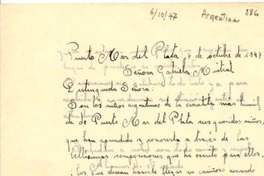 6/10/47 Argentina 286
Puerto Mar del Plata, 6 de octubre de 1947
Señora Gabriela Mistral
Distinguida Señora:
Son los niños argentinos de la escuelita mas humil
de de Puerto Mar del Plata sus grandes niños,
que han aprendido a conocerla a través de las
bellísimas composiciones que ha escrito para ellos,
los que desean hacerle llegar su cariñoso